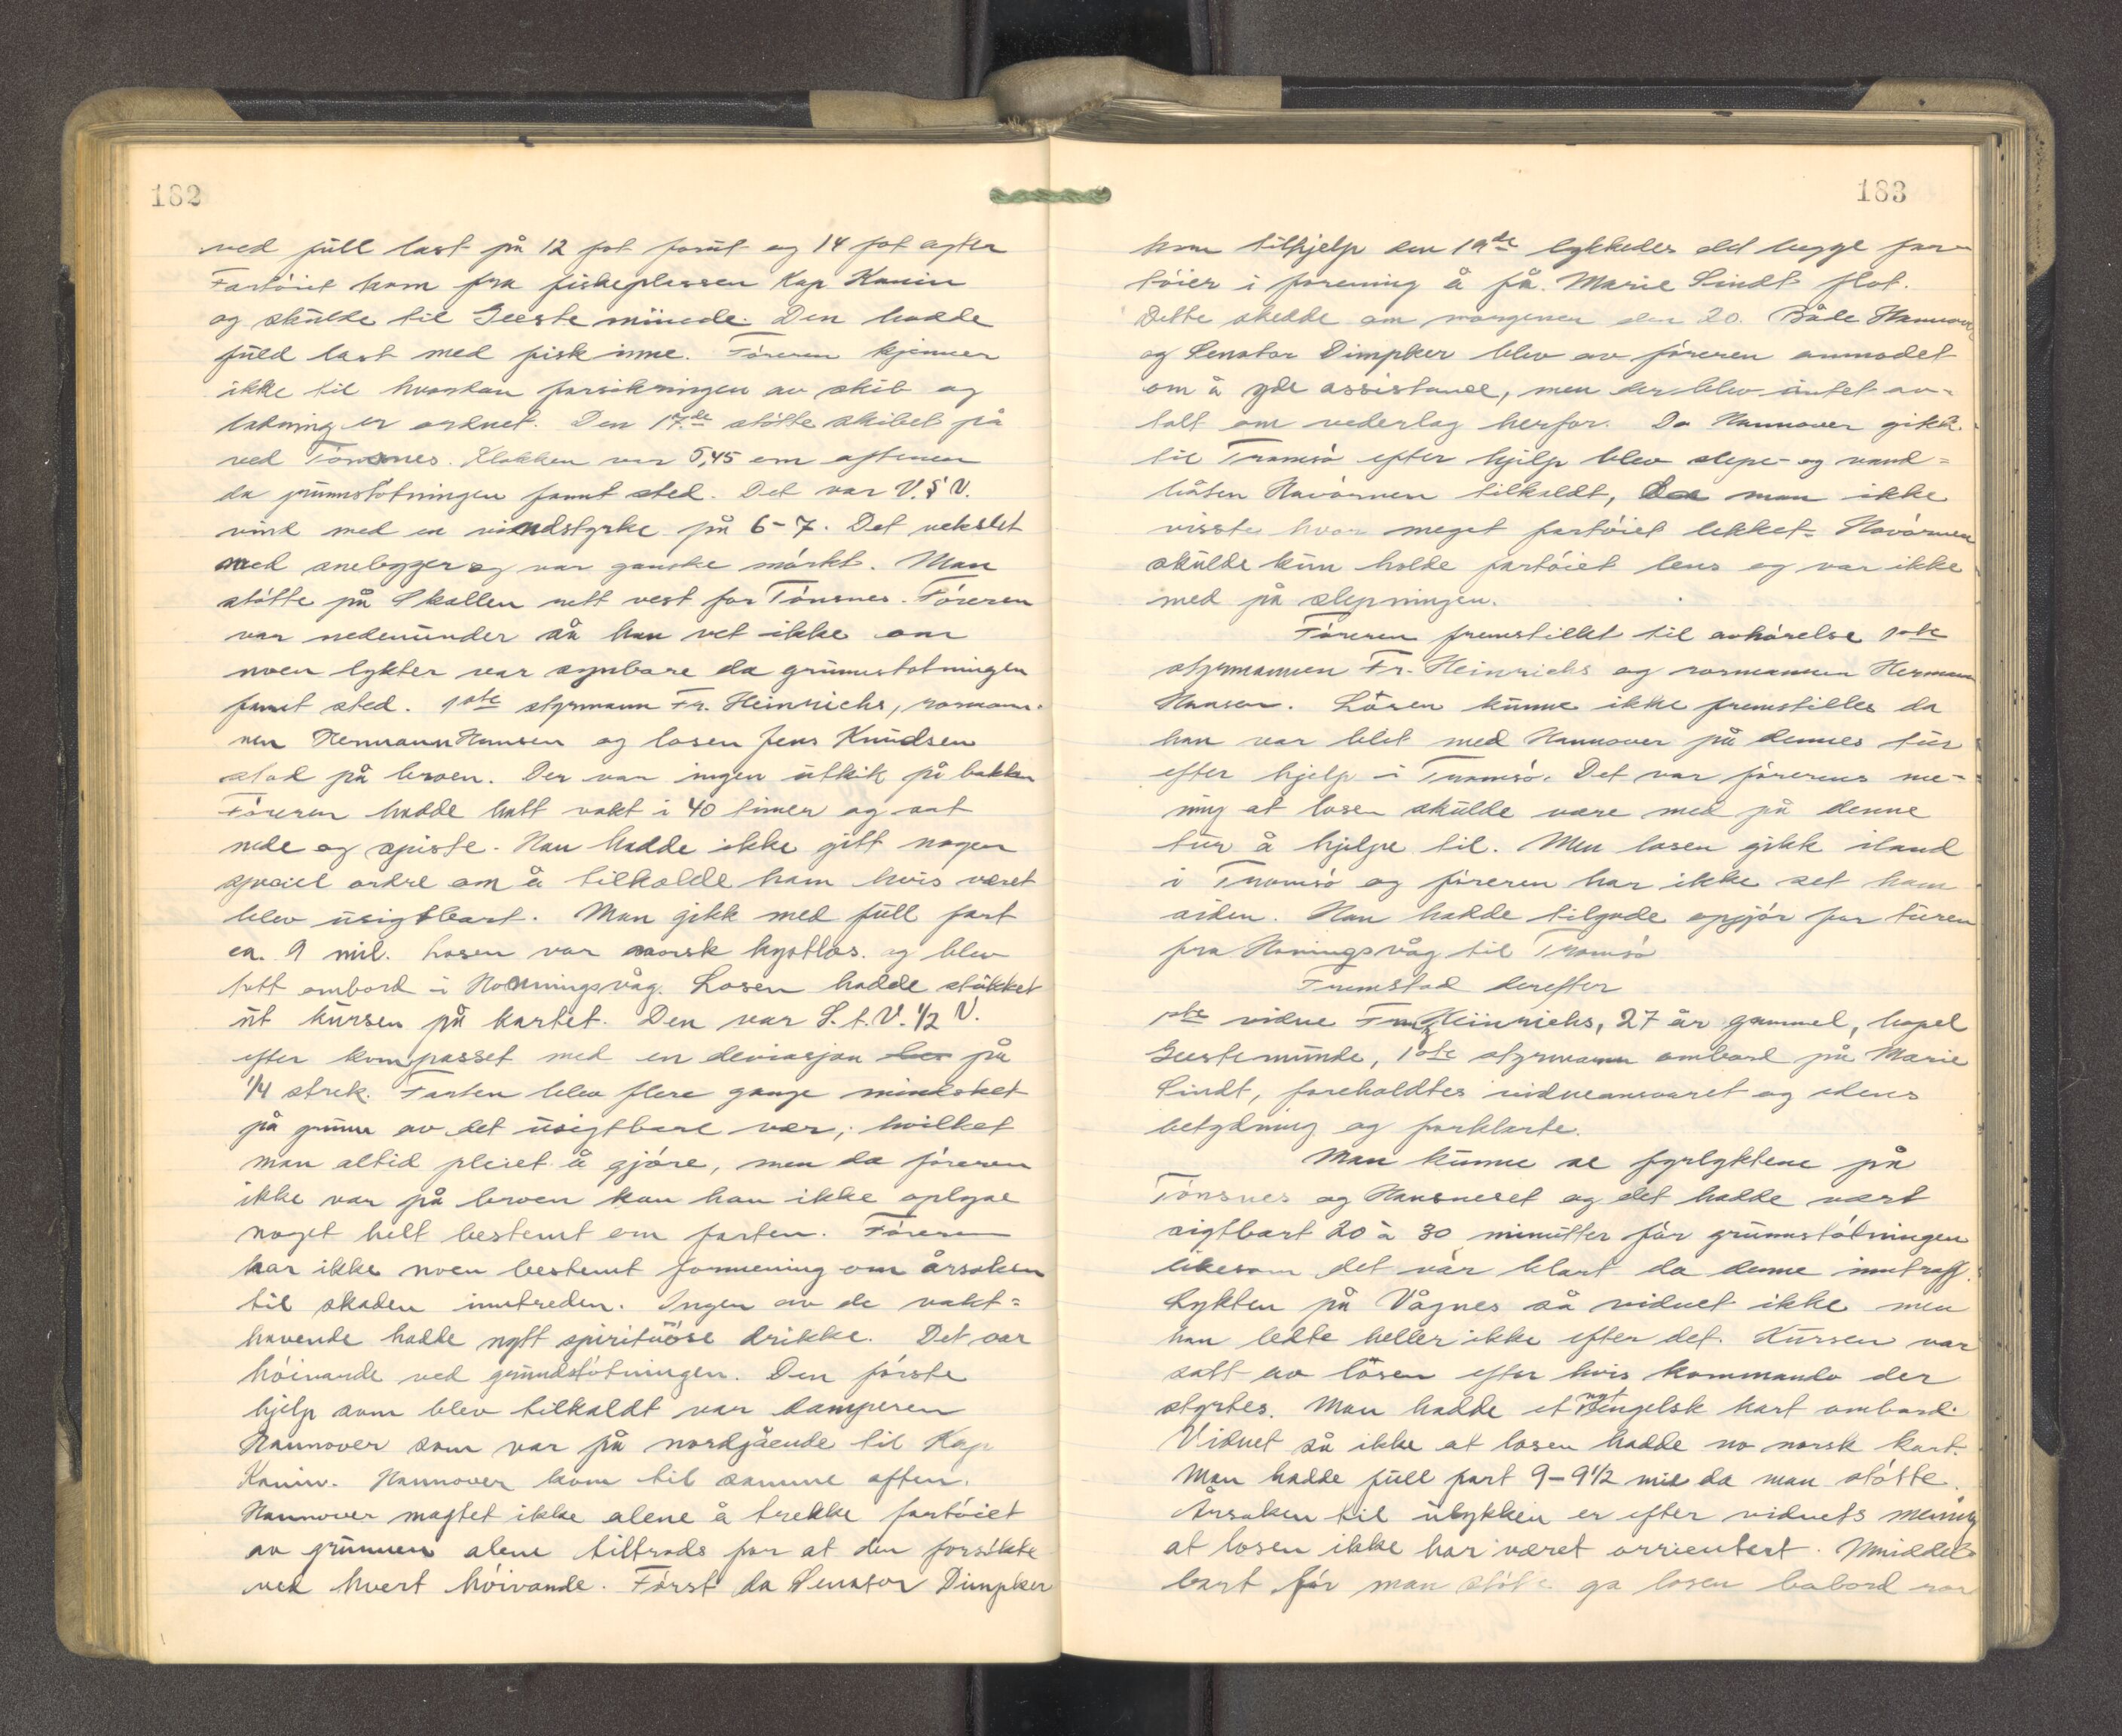 182
ved full last på 12 fot forut og 14 fot agter
Fartöiet kom fra fiskeplassen Kap Kanin
og skulde til Geestemünde. Den hadde
fuld last med fisk inne. Föreren kjenner
ikke til hvordan forsikringen av skib og
ladning er ordnet. Den 17de stötte skibet på
ved Tönsnes. Klokken var 5,45 em aftenen
da grunnstötningen fant sted. Det var V.S.V.
vind med en vindstyrke på 6-7. Det vekslet
med snebygger og var ganske mörkt. Man
stötte på Skallen nett vest for Tönsnes. Föreren
var nedenunder så han vet ikke om
noen lykter var synbare da grunnstotningen
fant sted. 1ste styrmann Fr. Heinrichs, rorman-
nen Hermann Hansen og losen Jens Knudsen
stod på broen. Der var ingen utkik på bakken
Föreren hadde hatt vakt i 40 timer og sat
nede og spiste. Han hadde ikke gitt nogen
speciel ordre om å tilkalde ham hvis været
blev usigtbart. Man gikk med full fart
ca. 9 mil. Losen var norsk kystlos. og blev
tatt ombord i Honningsvåg. Losen hadde stukket
ut kursen på kartet. Den var S.t.V. 1/2 V.
efter kompasset med en deviasjon på
1/4 strek. Farten blev flere gange mindsket
på grunn av det usigtbare vær, hvilket
man altid pleiet å gjöre, men da föreren
ikke var på broen kan han ikke oplyse
noget helt bestemt om farten. Föreren
har ikke noen bestemt formening om årsaken
til skaden inntreden. Ingen av de vakt=
havende hadde nytt spirituöse drikke. Det var
höivande ved grundstötningen. Den förste
hjelp som blev tilkaldt var damperen
Hannover som var på nordgående til Kap
Kanin. Hannover kom til samme aften.
Hannover magtet ikke alene å trekke fartöiet
av grunnen alene tiltrods for at den forsökte
ved hvert höivande. Först da Senator Dimpker
183
kom tilhjelp den 19de lykkedes det begge far-
töier i forening å få Marie Lindt flot.
Dette skedde om morgenen den 20. Både Hannover
og Senator Dimpker blev av föreren anmodet
om å yde assistanse, men der blev intet av-
talt om vederlag herfor. Da Hannover gikk
til Tromsö efter hjelp blev slepe- og vand=
båten Havörnen tilkaldt, da man ikke
visste hvor meget fartöiet lekket. Havörnen
skulde kun holde fartöiet lens og var ikke
med på slepningen.
Föreren fremstillet til avhörelse 1ste
styrmannen Fr. Heinrichs og rormannen Hermann
Hansen. Losen kunne ikke fremstilles da
han var blit med Hannover på dennes tur
efter hjelp i Tromsö. Det var förerens me-
ning at losen skulde være med på denne
tur å hjelpe til. Men losen gikk iland
i Tromsö og föreren har ikke set ham
siden. Han hadde tilgode opgjör for turen
fra Honingsvåg til Tromsö
Fremstod derefter
1ste vidne Heinrichs, 27 år gammel, bopel
Geestemünde, 1ste styrmann ombord på Marie
Lindt, foreholdtes vidneansvaret og edens
betydning og forklarte.
Man kunne se fyrlyktene på
Tönsnes og Hansneset og det hadde vært
sigtbart 20 à 30 minutter för grunnstötningen
likesom det var klart da denne inntraff.
Lykten på Vågnes så vidnet ikke men
han ledte heller ikke efter det. Kursen var
satt av losen efter hvis kommando der
styrtes. Man hadde et nyt engelsk kart ombord.
Vidnet så ikke at losen hadde no norsk kart.
Man hadde full fart 9-9 1/2 mil da man stötte.
Årsaken til ulykken er efter vidnets mening
at losen ikke har været orrientert. Umiddel-
bart för man stötte ga losen babord ror